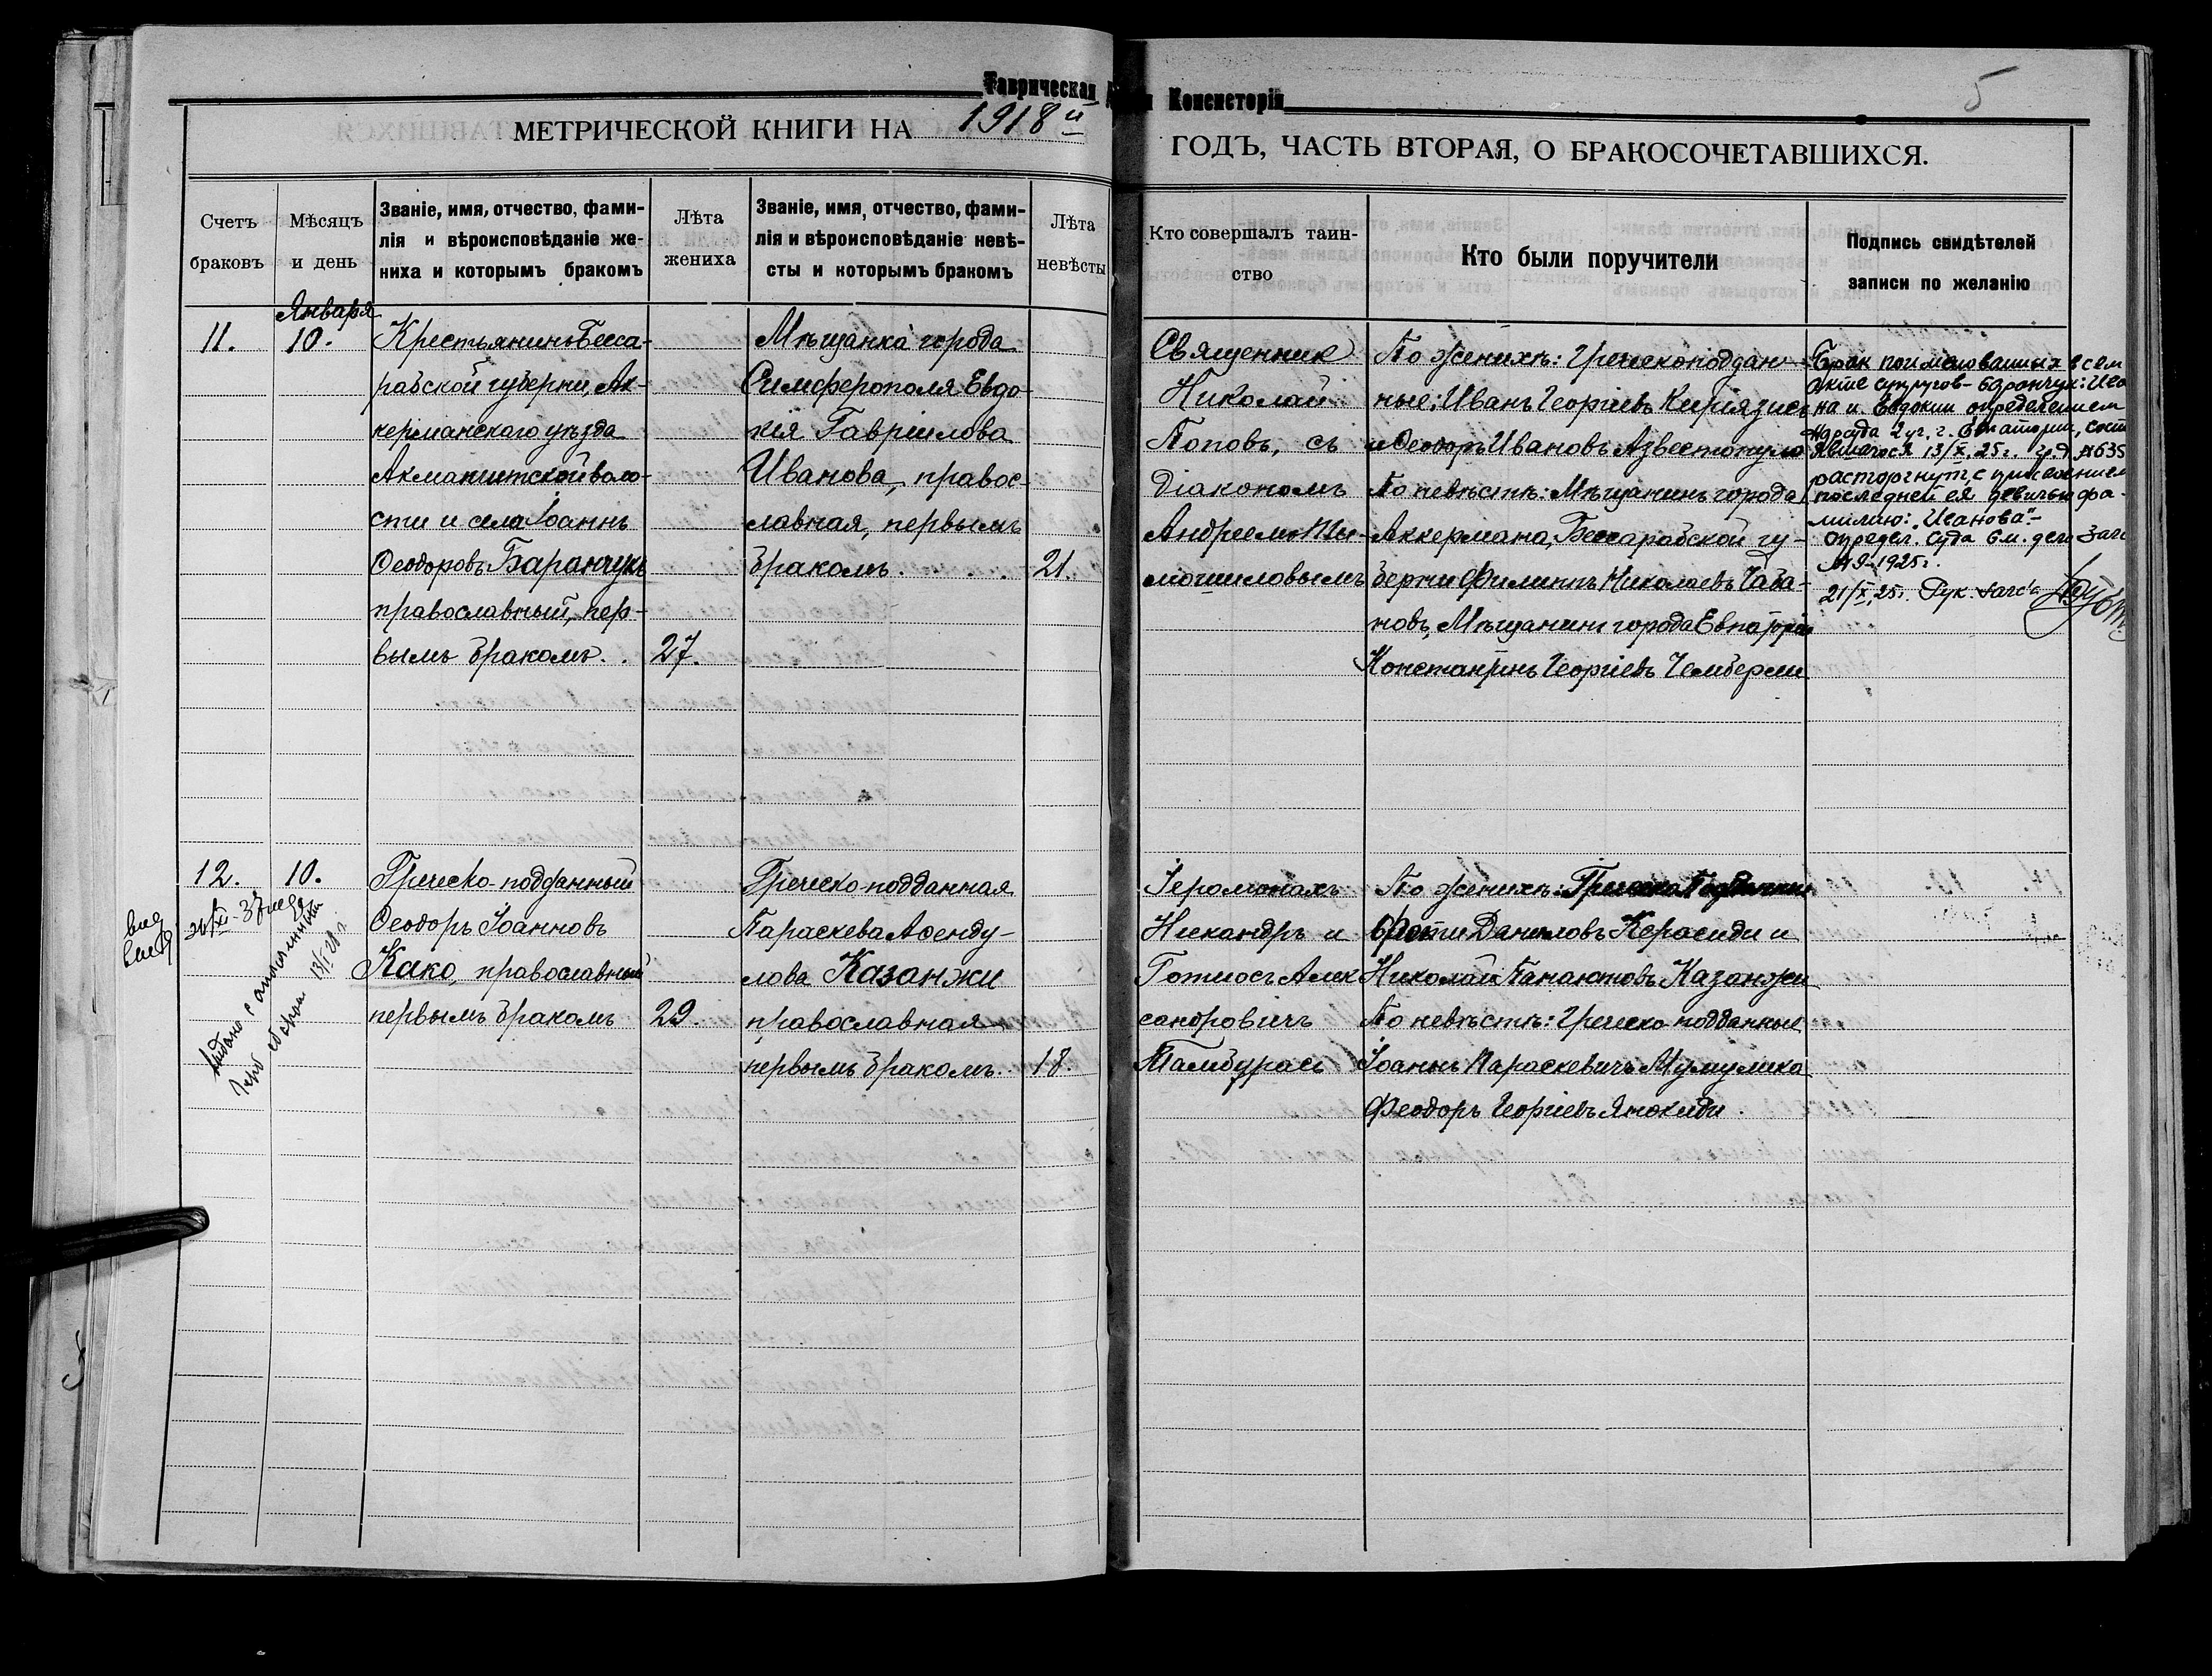 Таврическая
Консисторіи
5
МЕТРИЧЕСКОЙ КНИГИ НА 1918й
ГОДЪ, ЧАСТЬ ВТОРАЯ, О БРАКОСОЧЕТАВШИХСЯ.
Счетъ браковъ
Мѣсяцъ и день
Званіе, имя, отчество, фами-
лія и вѣроисповѣданіе же-
ниха и которымъ бракомъ
Лѣта жениха
Званіе, имя, отчество, фами-
лія и вѣроисповѣданіе невѣ-
сты и которымъ бракомъ
Лѣта невѣсты
Кто совершалъ таин-
ство
Кто были поручители
Подпись свидѣтелей
записи по желанію
Января
11.
10.
Крестьянинъ Бесса-
рабской губерни, Ак-
керманскаго уѣзда
Акмангитской воло-
сти и села Іоаннъ
Ѳеодоровъ Баранчукъ
православный, пер-
вымъ бракомъ. .
27.
Мѣщанка города
Симферополя Евдо-
кія Гавріилова
Иванова, правос-
лавная, первымъ
бракомъ. . . .
21.
Священник
Николай
Поповъ, съ
Діакономъ
Андреемъ Шы-
мошиловымъ
По женихѣ: Греческоподдан-
ные: Иванъ Георгіевъ Кефіязисъ
и Ѳеодоръ Ивановъ Азвестопуло
По невѣстѣ: Мѣщанинъ города
Аккермана, Бессарабской гу-
берни Филиппъ Николаевъ Чаба-
новъ, Мѣщанинъ города Евпаторіи
Константинъ Георгіевъ Чемберли
Брак поименованных в сем
акте супругов - Баранчук: Ива
на и Евдокии определением
Нарсуда 2 уч. г. Евпатории, сост
явшагося 13/X, 25 г. гр.д. №635
расторгнут, с присвоением
последней ея девичью фа-
милию: „Иванова".-
Определ. Суда см. дело Загс
№9-1925 г.
21/X, 25 г. Рук. Загс'а
12.
10.
Греческо-подданный
Ѳеодоръ Іоанновъ
Како, православный
первымъ бракомъ
29.
Греческо-подданная
Параскева Асенду-
лова Казанжи
православная
первымъ бракомъ.
18.
Іеромонахъ
Никандръ и
Готиосъ Алек
сандровичъ
Тамбурасъ
По женихѣ: Греческо Подданные
Фоти Даниловъ Керасиди и
Николай Панаиотовъ Казанжи
По невѣстѣ: Греческо подданные
Іоаннъ Параскевичъ Мумулика
Феодоръ Георгіевъ Янокиди.
Выдано с
13/I 28 г